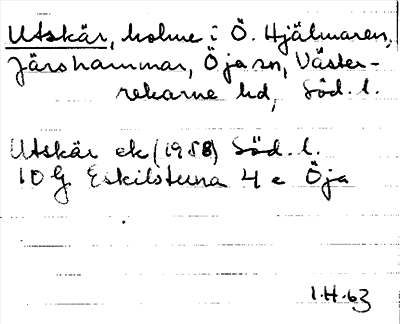 Utskär, holme i Ö. Hjälmaren,
Järshammar, Öja sn, Väster-
rekarne hd, Söd. l.
Utskär ek (1958) Söd. l.
10 G Eskilstuna 4 e Öja
1.H.63